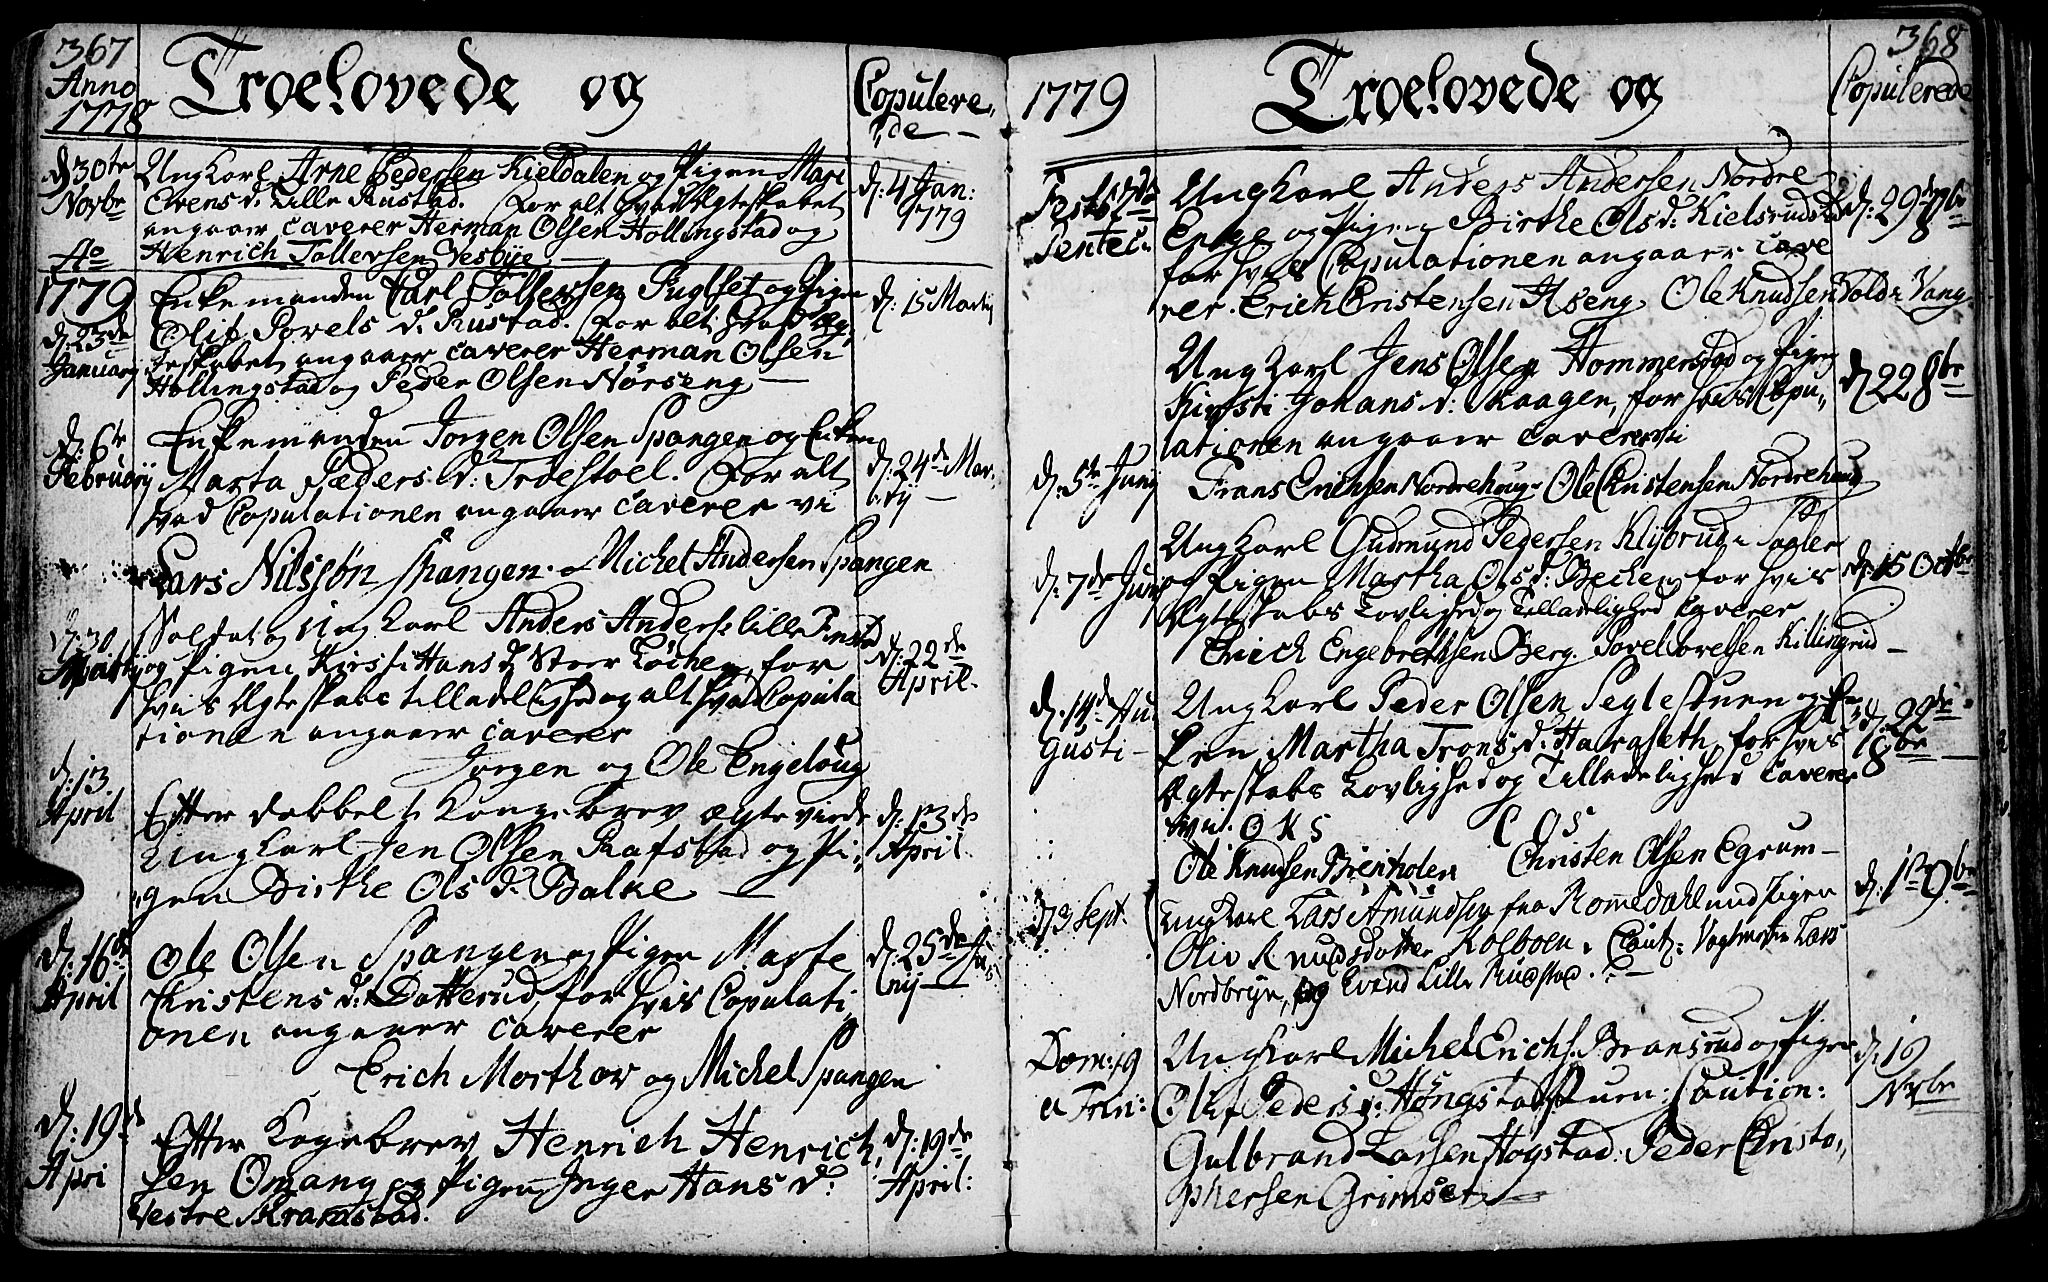 367
Anno
1778
Troelovede og
Copulere,,
de
d. 30te
Novbr
Ung Karl Arne Pedersen Kieldalen og Pigen Mari
Evens d. Lille Rustad. For alt hvad Ægteskabet
angaaer caverer Herman Olsen Hollingstad og
Henrich Tollersen Vesbye
d: 4 Jan:
1779
Ao
1779
d. 23de
January
Enkemanden Carl Tollefsen Fuglset og Pigen
Olif Povels d. Rustad. For alt hvad Æg,
teskabet angaaer caverer Herman Olsen
Hollingstad og Peder Olsen Nørseng
d: 15 Martij
d. 6te
February
Enkemanden Jørgen Olsen Spangen og Enken
Marta Peders d: Trdestoel. For alt
hvad Copulationen angaaer caverer vi
Lars Nilssøn Spangen. Michel Andersen Spangen
d. 24de Mar,
tij
d. 30
Martij
Soldat og Ung Karl Anders Anders: lille
og Pigen Kirsti Hans d. Stoer Løchen, for
hvis Ægteskabs tilladelighed og alt hvad Copula
tionen angaaer caverer
Jørgen og Ole Engeloug
d: 22de
April.
d: 13
April
Efter dobbelt Kongebrev ægteviede
Ung Karl Jen Olsen Rafstad og Pi,
gen Birthe Ols d. Balke
d: 13de
April
d: 16de
April
Ole Olsen Spangen og Pigen Marte
Christens d: Dotterud, for hvis Copulati,
onen angaaer caverer
Erich Morthov og Michel Spangen
d: 25de Ju
nij
d: 19de
Apri
Efter Kogebrev Henrich Henrich,
sen Omang og Pigen Inger Hans d:
Vestre Kramstad.
d: 19de
April:
368
1779
Troelovede og
Copulerede
Festo 2de
Pentec:
Ung Karl Anders Andersen Nordre
Enge og Pigen Birthe Ols d: Kielsrud
for hvis Copulationen angaaer cave
rer. Erich Cristensen Aseng Ole Knudsen Told: Vang
d: 29de 7br
Ung Karl Jens Olsen Hommerstad og Pigen
Kirsti Johans d: Skaagen, for hvis Copu,,
lationen angaaer caverer vi
Frans Erichsen Nordrehoug. Ole Christensen Nordrehoug
d. 5te Junij
d 22 8br
Ung Karl Gudmund Pedersen Klybrud i Sogler
og Pigen Martha Ols d: Becken, for hvis
Ægteskabs Lovlighed og Tilladelighed caverer
Erich Engebrethsen Berg. Povel Povelsen Killingrud
d. 7de Junij
d: 15 Octobr
d. 14de Au,
gusti
Ung Karl Peder Olsen Seglestuen og En
ken Martha Trons d. Haugseth, for hvis
Ægteskabs Lovlighed og Tilladelighed caverer
vi. O K S C O S
Ole Knudsen Bienholen Christen Olsen Egrum
d: 22de
8br
d 3 Sept.
Ung Karl Lars Amundsen fra Rommedahl und Pigen
Oliv Knudsdotter Kolboen. Caut: Vogtmester Lars
Nordbrye, og Evend Lille Rudstad.
d: 1te 9br
Dom: 19
a Trin:
Ung Karl Michel Erichs: Bransrud og Pigen
Olif Peders d: Hongstadstuen: Caution:
Gulbrand Larsen Hogstad: Peder Christo,,
phersen Grimset
d: 19
Nvbr